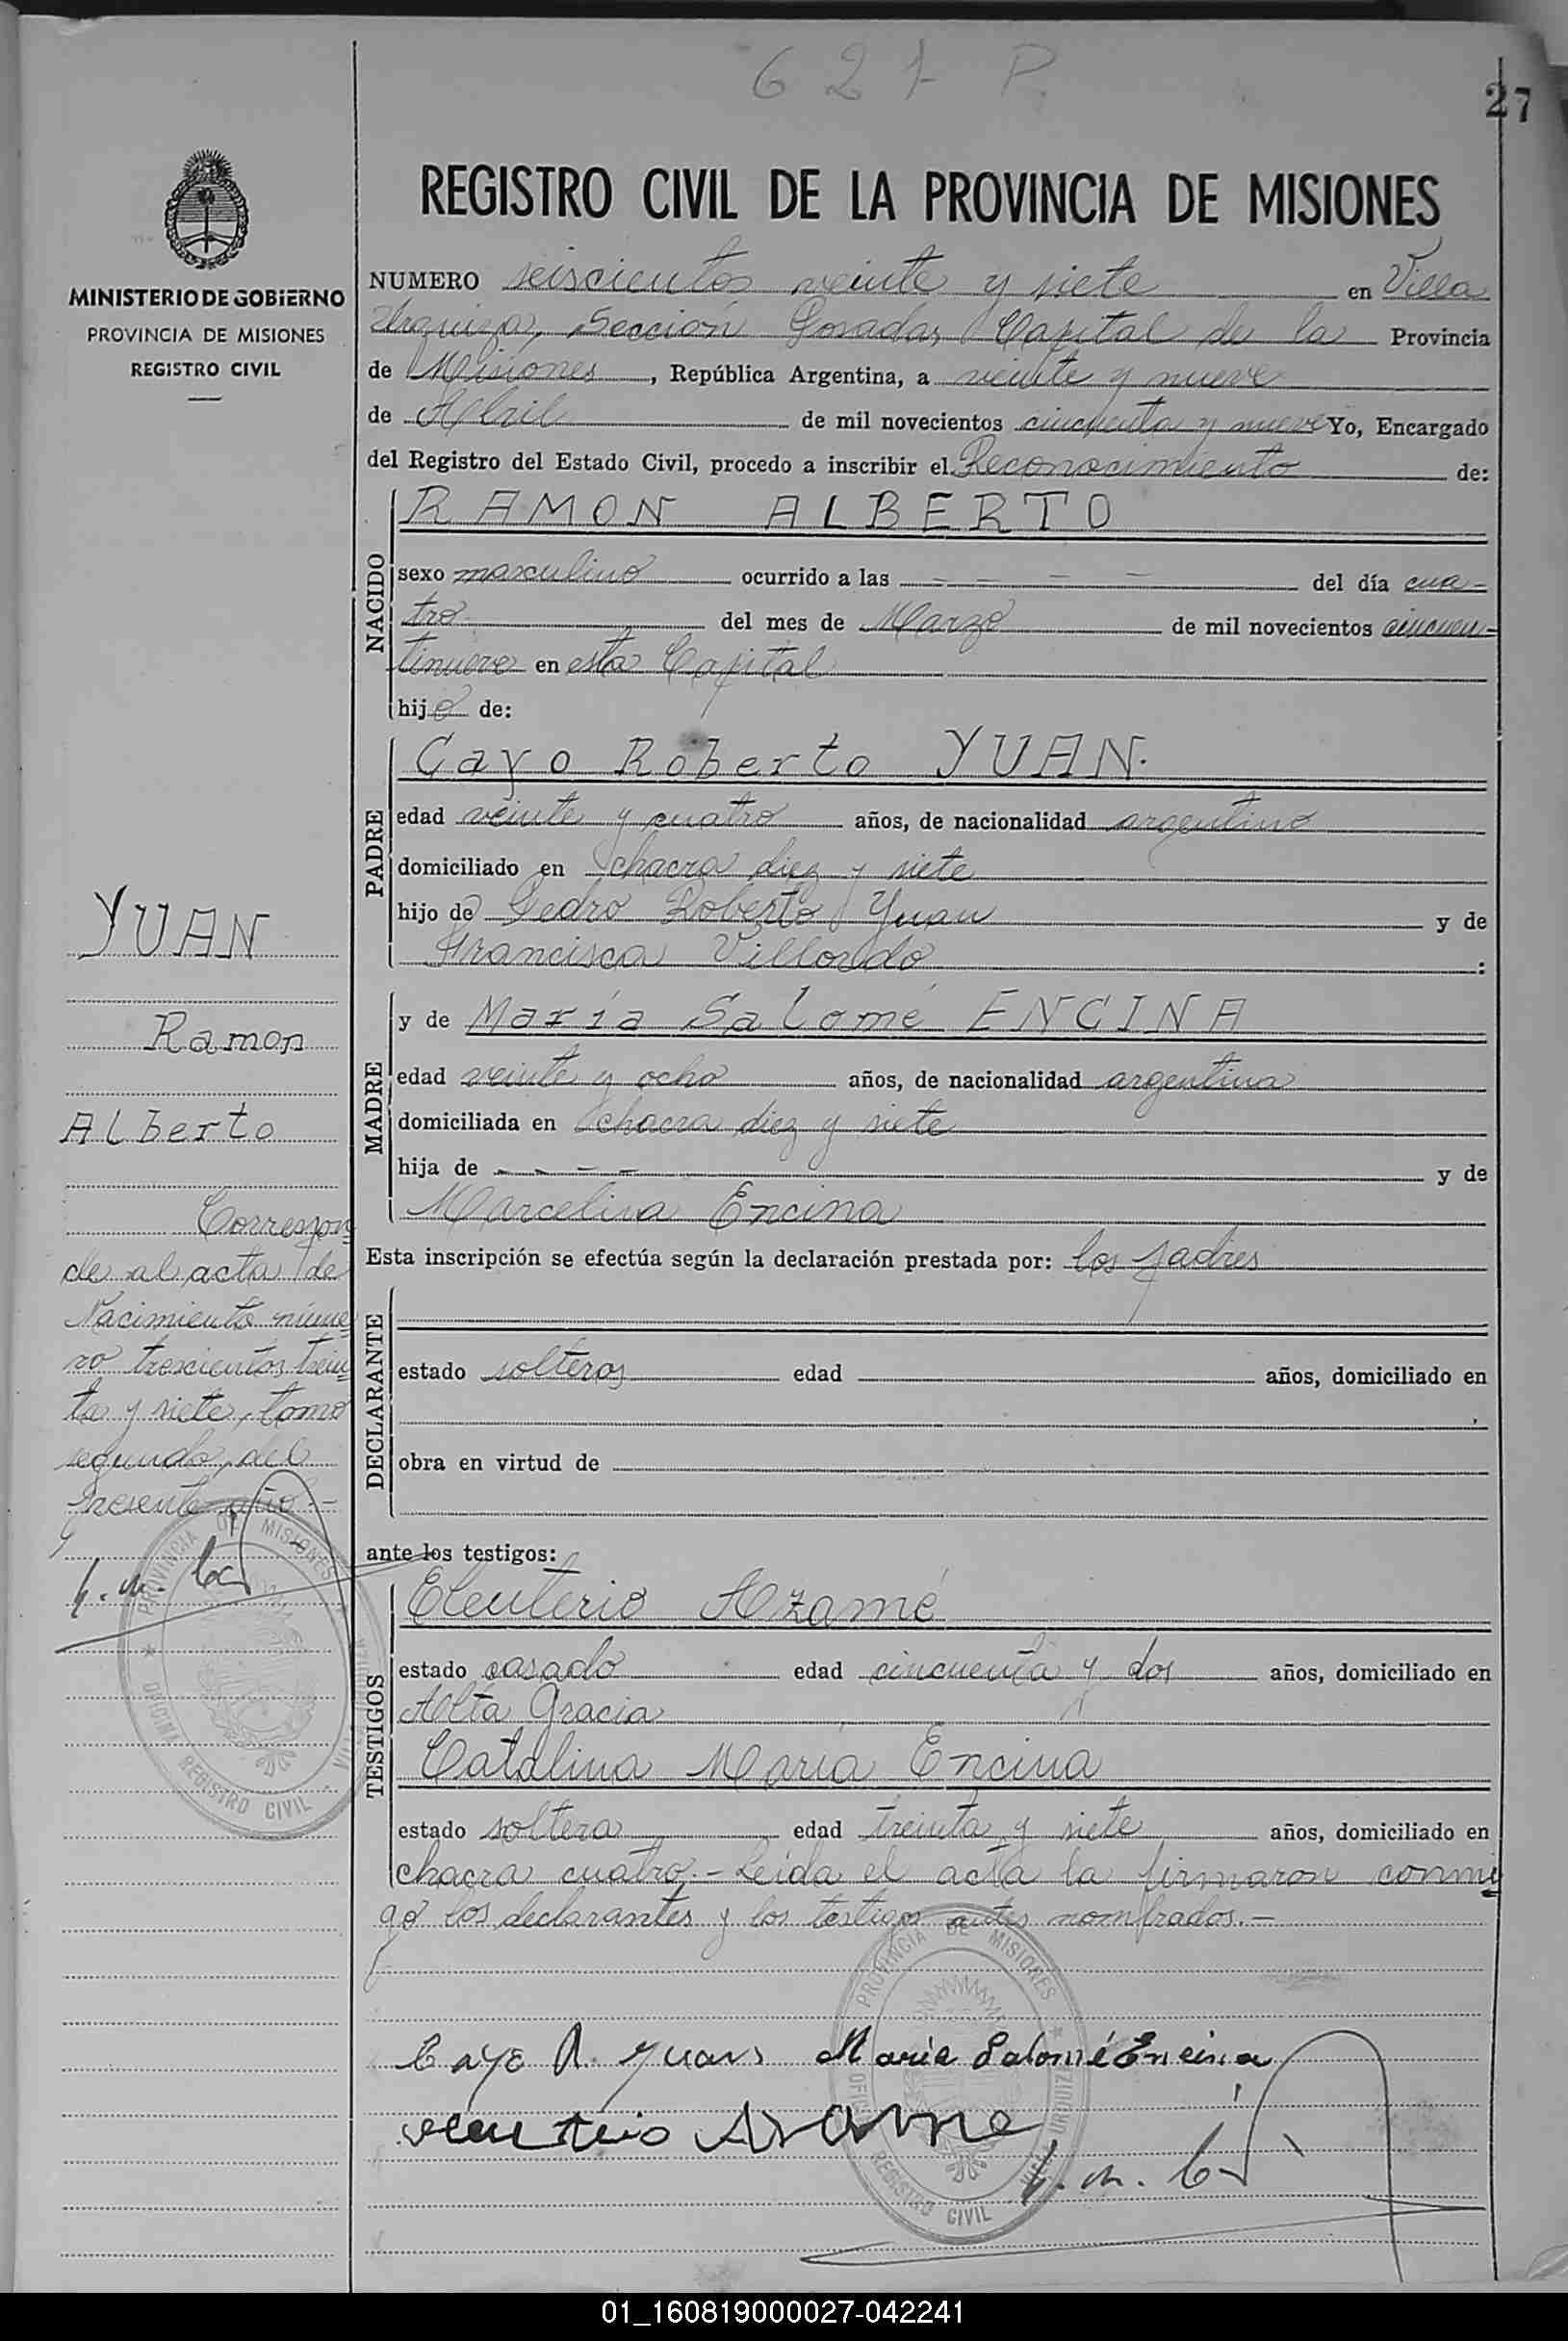 627 P.
27
MINISTERIO DE GOBIERNO
PROVINCIA DE MISIONES
REGISTRO CIVIL
REGISTRO CIVIL DE LA PROVINCIA DE MISIONES
NUMERO seiscientos veinte y siete en Villa
Urquiza, Sección Posadas, Capital de la Provincia
de Misiones, República Argentina, a veinte y nueve
de Abril de mil novecientos cincuenta y nueve Yo, Encargado
del Registro del Estado Civil, procedo a inscribir el Reconocimiento de:
NACIDO
RAMON ALBERTO
sexo masculino ocurrido a las - - - - del día cua-
tro del mes de Marzo de mil novecientos cincuen-
tinueve en esta Capital
hijo de:
PADRE
Cayo Roberto YUAN.
edad veinte y cuatro años, de nacionalidad argentino
domiciliado en chacra diez y siete
hijo de Pedro Roberto Yuan y de
Francisca Villordo :
MADRE
y de María Salomé ENCINA
edad veinte y ocho años, de nacionalidad argentina
domiciliada en chacra diez y siete
hija de - - - - y de
Marcelina Encina
Esta inscripción se efectúa según la declaración prestada por: los padres
DECLARANTE
estado solteros edad años, domiciliado en
,
obra en virtud de
ante los testigos:
TESTIGOS
Eleuterio Azamé
estado casado edad cincuenta y dos años, domiciliado en
Alta Gracia
Catalina María Encina
estado soltera edad treinta y siete años, domiciliado en
chacra cuatro.- Leída el acta la firmaron conmi
go los declarantes y los testigos antes nombrados.-
Cayo R. Yuan María Salomé Encina
YUAN
Ramon
Alberto
Correspon
de al acta de
Nacimiento núme
ro trescientos trein
ta y siete, tomo
segundo, del
presente año.-
PROVINCIA DE MISIONES
OFICINA REGISTRO CIVIL
PROVINCIA DE MISIONES
REGISTRO CIVIL
URQUIZA
01_160819000027-042241